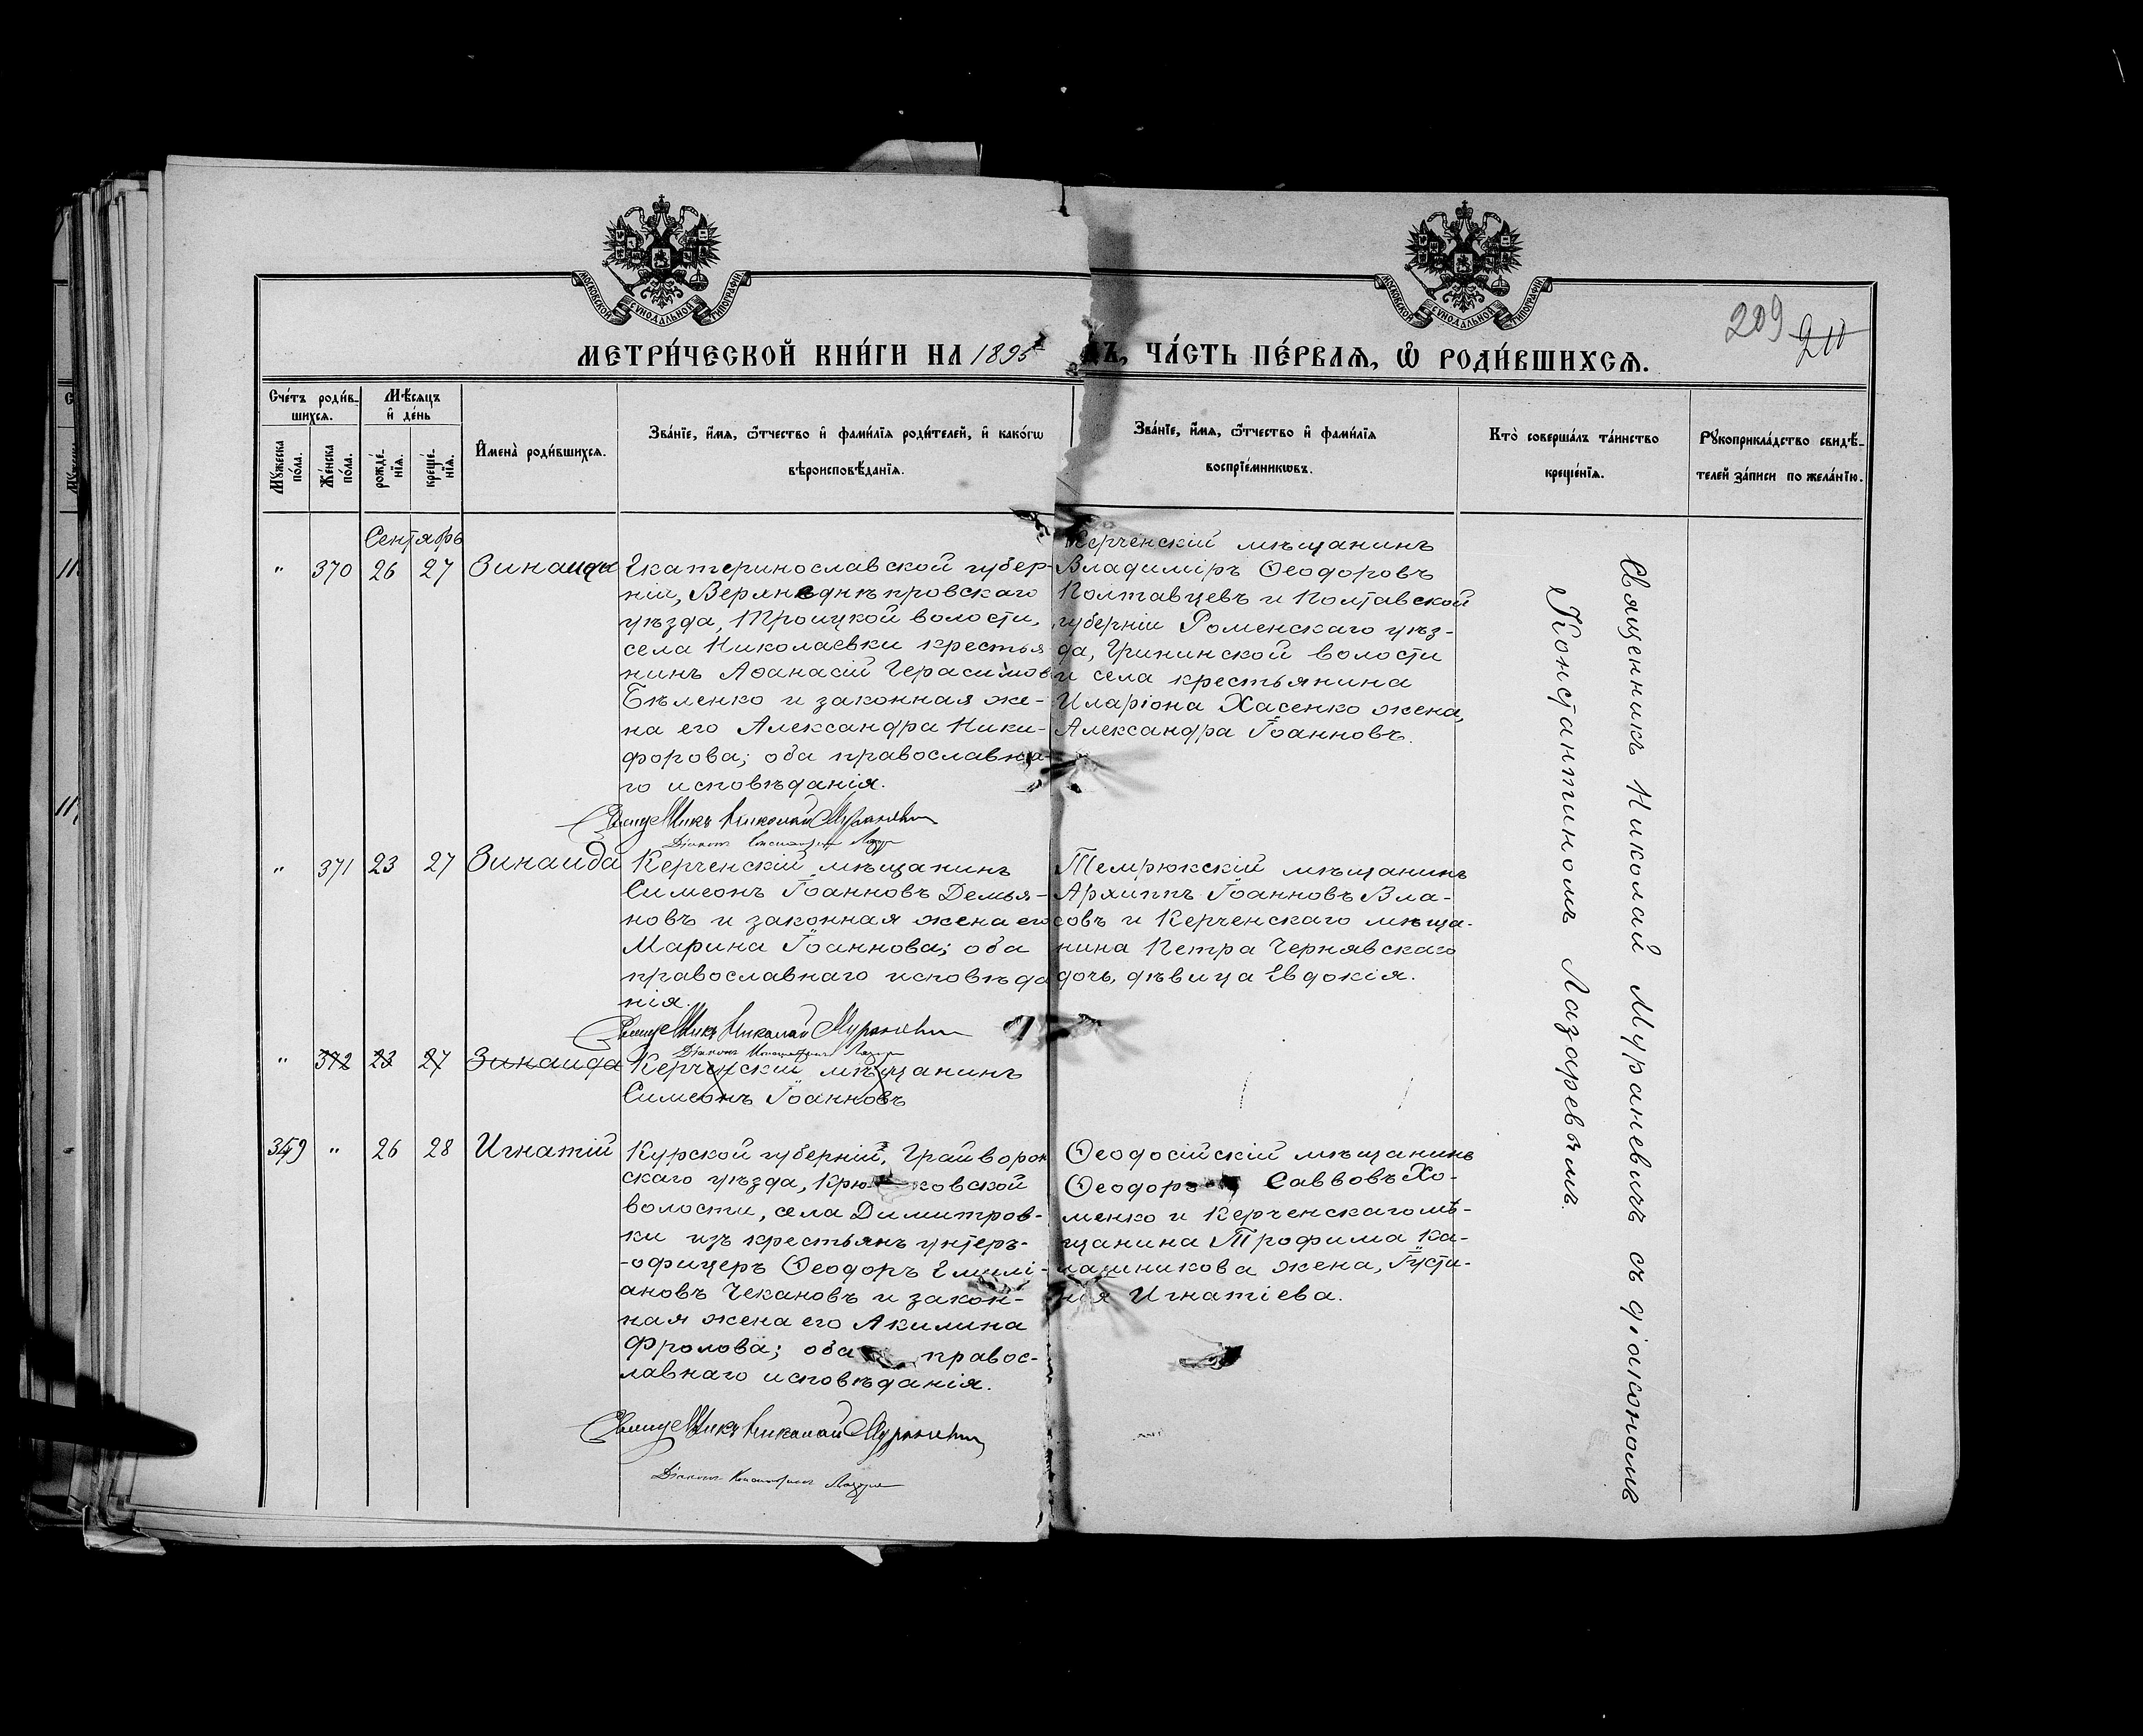 МОСКОВСКОЙ СѴНОДАЛЬНОЙ ТИПОГРАФІИ
МОСКОВСКОЙ СѴНОДАЛЬНОЙ ТИПОГРАФІИ
209 210
МЕТРИ́ЧЕСКОЙ КНИ́ГИ НА 1895 ДЪ, ЧА́СТЬ ПЕ́РВАѦ, Ѡ҆ РОДИ́ВШИХСѦ.
Сче́тъ роди́в-
шихсѧ.
Мꙋ́жеска по́ла.
Же́нска по́ла.
Мѣ́сѧцъ
и҆ де́нь
рожде́-
нїѧ.
креще́-
нїѧ.
И҆мена̀ роди́вшихсѧ.
Зва́нїе, и҆́мѧ, ѻ҆́тчество и҆ фами́лїѧ роди́телей, и҆ како́гѡ
вѣроисповѣ́данїѧ.
Зва́нїе, и҆́мѧ, ѻ҆́тчество и҆ фами́лїѧ
воспрїе́мникѡвъ.
Кто̀ соверша́лъ та́инство
креще́нїѧ.
Рꙋкоприкла́дство свидѣ́-
телей за́писи по жела́нїю.
Сентябрь
" 370 26 27 Зинаида
Екатеринославской губер-
ніи, Верхнеднѣпровскаго
уѣзда, Троицкой волости,
села Николаевки крестья
нинъ Аѳанасій Герасимов
Бѣленко и законная же-
на его Александра Ники-
форова; оба православна-
го исповѣданія.
Священникъ Николай Мураневичъ
Діаконъ Константинъ Лазаревъ
Керченскій мѣщанинъ
Владиміръ Ѳеодоровъ
Полтавцевъ и Полтавской
губерніи Роменскаго уѣз-
да, Грининской волости
и села крестьянина
Иларіона Хасенко жена,
Александра Іоанновъ.
" 371 23 27 Зинаида
Керченскій мѣщанинъ
Симеонъ Іоанновъ Демья-
новъ и законная жена его
Марина Іоаннова; оба
православнаго исповѣда
нія.
Священникъ Николай Мураневичъ
Діаконъ Константинъ Лазаревъ
Темрюкскій мѣщанинъ
Архиппъ Іоанновъ Вла-
совъ и Керченскаго мѣща-
нина Петра Чернявскаго
дочь, дѣвица Евдокія.
" 372 23 27 Зинаида
Керченскій мѣщанинъ
Симеонъ Іоанновъ
349 " 26 28 Игнатій
Курской губерній, Грайворон
скаго уѣзда, Крю ковской
волости, села Димитров-
ки изъ крестьянъ унтеръ-
-офицеръ Ѳеодоръ Емилі-
ановъ Чекановъ и закон-
ная жена его Акилина
Фролова; оба правос-
лавнаго исповѣданія.
Священникъ Николай Мураневичъ
Діаконъ Константинъ Лазаревъ
Ѳеодосійскій мѣщанинъ
Ѳеодоръ Саввовъ Хо-
менко и Керченскаго мѣ-
щанина Трофима Ка-
лашникова жена, Іусти-
нія Игнатіева.
Священникъ Николай Мураневичъ съ діакономъ
Константиномъ Лазаревымъ.